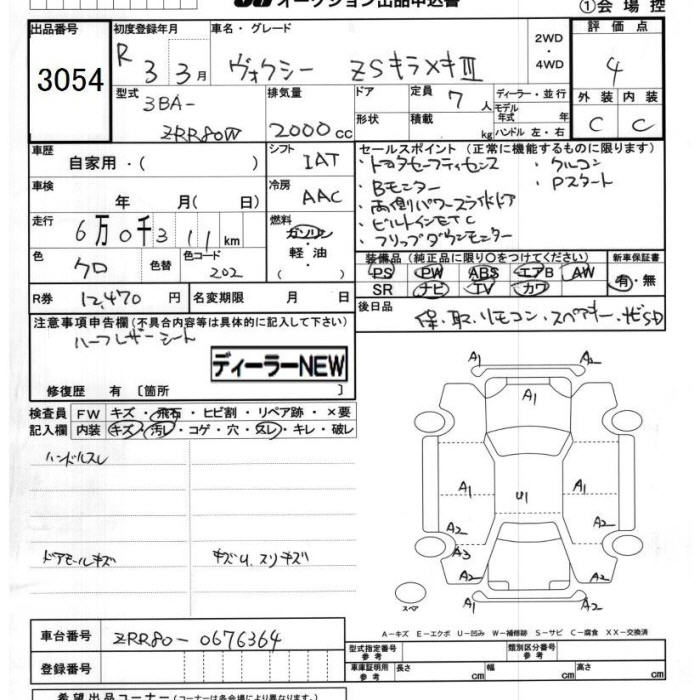 オークション出品申込書
①会場控
出品番号
3054
初度登録年月
R 3 3月
車名・グレード
ヴォクシー ZSキラメキIII
2WD
・
4WD
評価点
4
型式
3BA-
ZRR80W
排気量
2000cc
ドア
形状
定員 7人
積載 kg
ディーラー・並行
モデル年式 年
ハンドル 左・右
外装 内装
C C
車歴
自家用・( )
シフト
IAT
車検
年 月( 日)
冷房
AAC
走行
6万0千311km
燃料
ガソリン
軽油
・
色
クロ
色替
色コード
202
R券 12,470円
名変期限 月 日
セールスポイント(正常に機能するものに限ります)
・トヨタセーフティセンス ・クルコン
・Bモニター ・Pスタート
・両側パワースライドドア
・ビルトインETC
・フリップダウンモニター
装備品(純正品に限り○をつけてください)
新車保証書
PS PW ABS エアB AW
SR ナビ TV カワ
有・無
後日品
保・取・リモコン・スペアキー・ナビSD
注意事項申告欄(不具合内容等は具体的に記入して下さい)
ハーフレザーシート
ディーラーNEW
修復歴 有〔箇所 〕
検査員記入欄
FW キズ・飛石・ヒビ割・リペア跡・×要
内装 キズ・汚レ・コゲ・穴・スレ・キレ・破レ
ハンドルスレ
ドアモールキズ
キズU、スリキズ
A1 A2
A1
A1 U1 A1
A2 A2
A3
A2 A2
A1 A2
スペア
A-キズ E-エクボ U-凹み W-補修跡 S-サビ C-腐食 XX-交換済
車台番号 ZRR80-0676364
登録番号
型式指定番号
参考
類別区分番号
参考
車庫証明用
参考
長さ cm 幅 cm 高さ cm
希望出品コーナー(コーナーは各会場により異なります。)